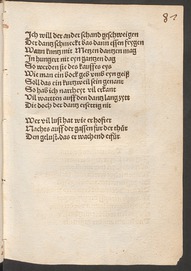 81
Ich will der ander schand geschweigen
Der dantz schmeckt bas dann essen fygen
Wann kuntz mit Metzen dantzen mag
In hungret nit eyn gantzen dag
So werden sie des kouffes eys
Wie man ein bock geb vmb eyn geiß
Soll das ein kurtzweil sein genant
So hab ich narrheyt vil erkant
Vil wartten auff den dantz lang zytt
Die doch der dantz ersettigt nit
Wer vil lust hat wie er hofier
Nachts auff der gassen für der thür
Den gelust, das er wachend erfür.